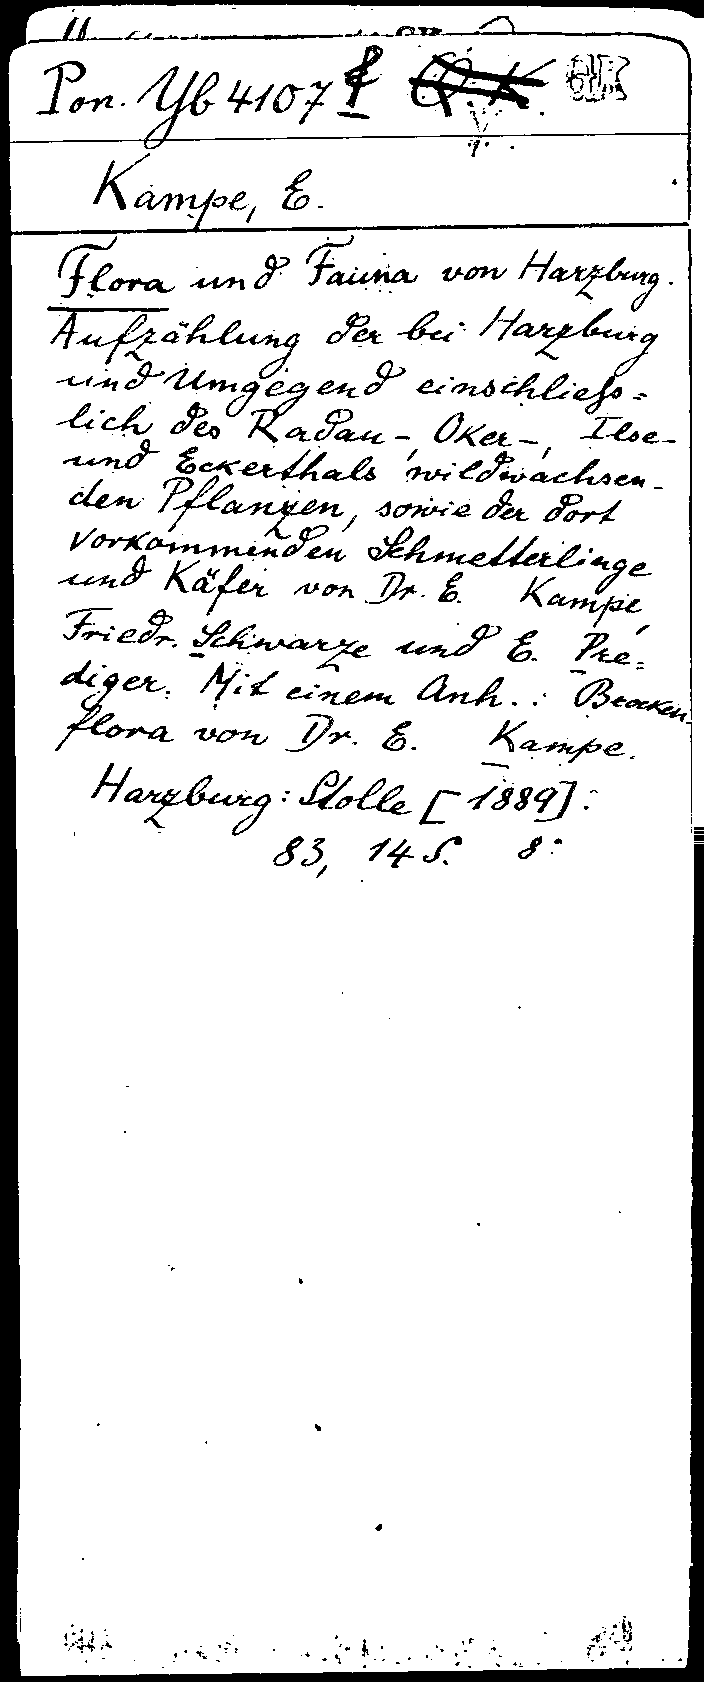 Pon. Yb 4107
Kampe, E.
Flora und Fauna von Harzburg.
Aufzählung der bei Harzburg
und Umgegend einschliess=
lich des Radau-, Oker-, Ilse-
und Eckerthals wildwachsen-
den Pflanzen, sowie der dort
vorkommenden Schmetterlinge
und Käfer von Dr. E. Kampe,
Friedr. Schwarze und E. Pre=
diger. Mit einem Anh.: Brocken-
flora von Dr. E. Kampe.
Harzburg: Stolle [1889].
83, 14 S. 8°